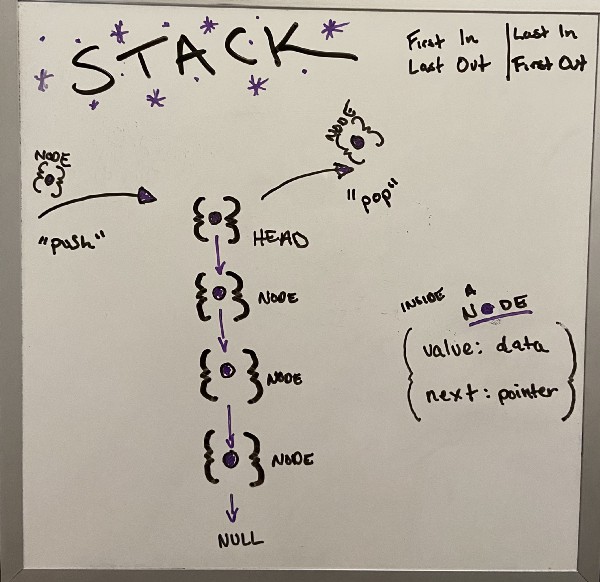 STACK
First In
Last Out
Last In
First Out
NODE
"push"
NODE
"pop"
HEAD
NODE
NODE
NODE
NULL
INSIDE A
NODE
value: data
next: pointer